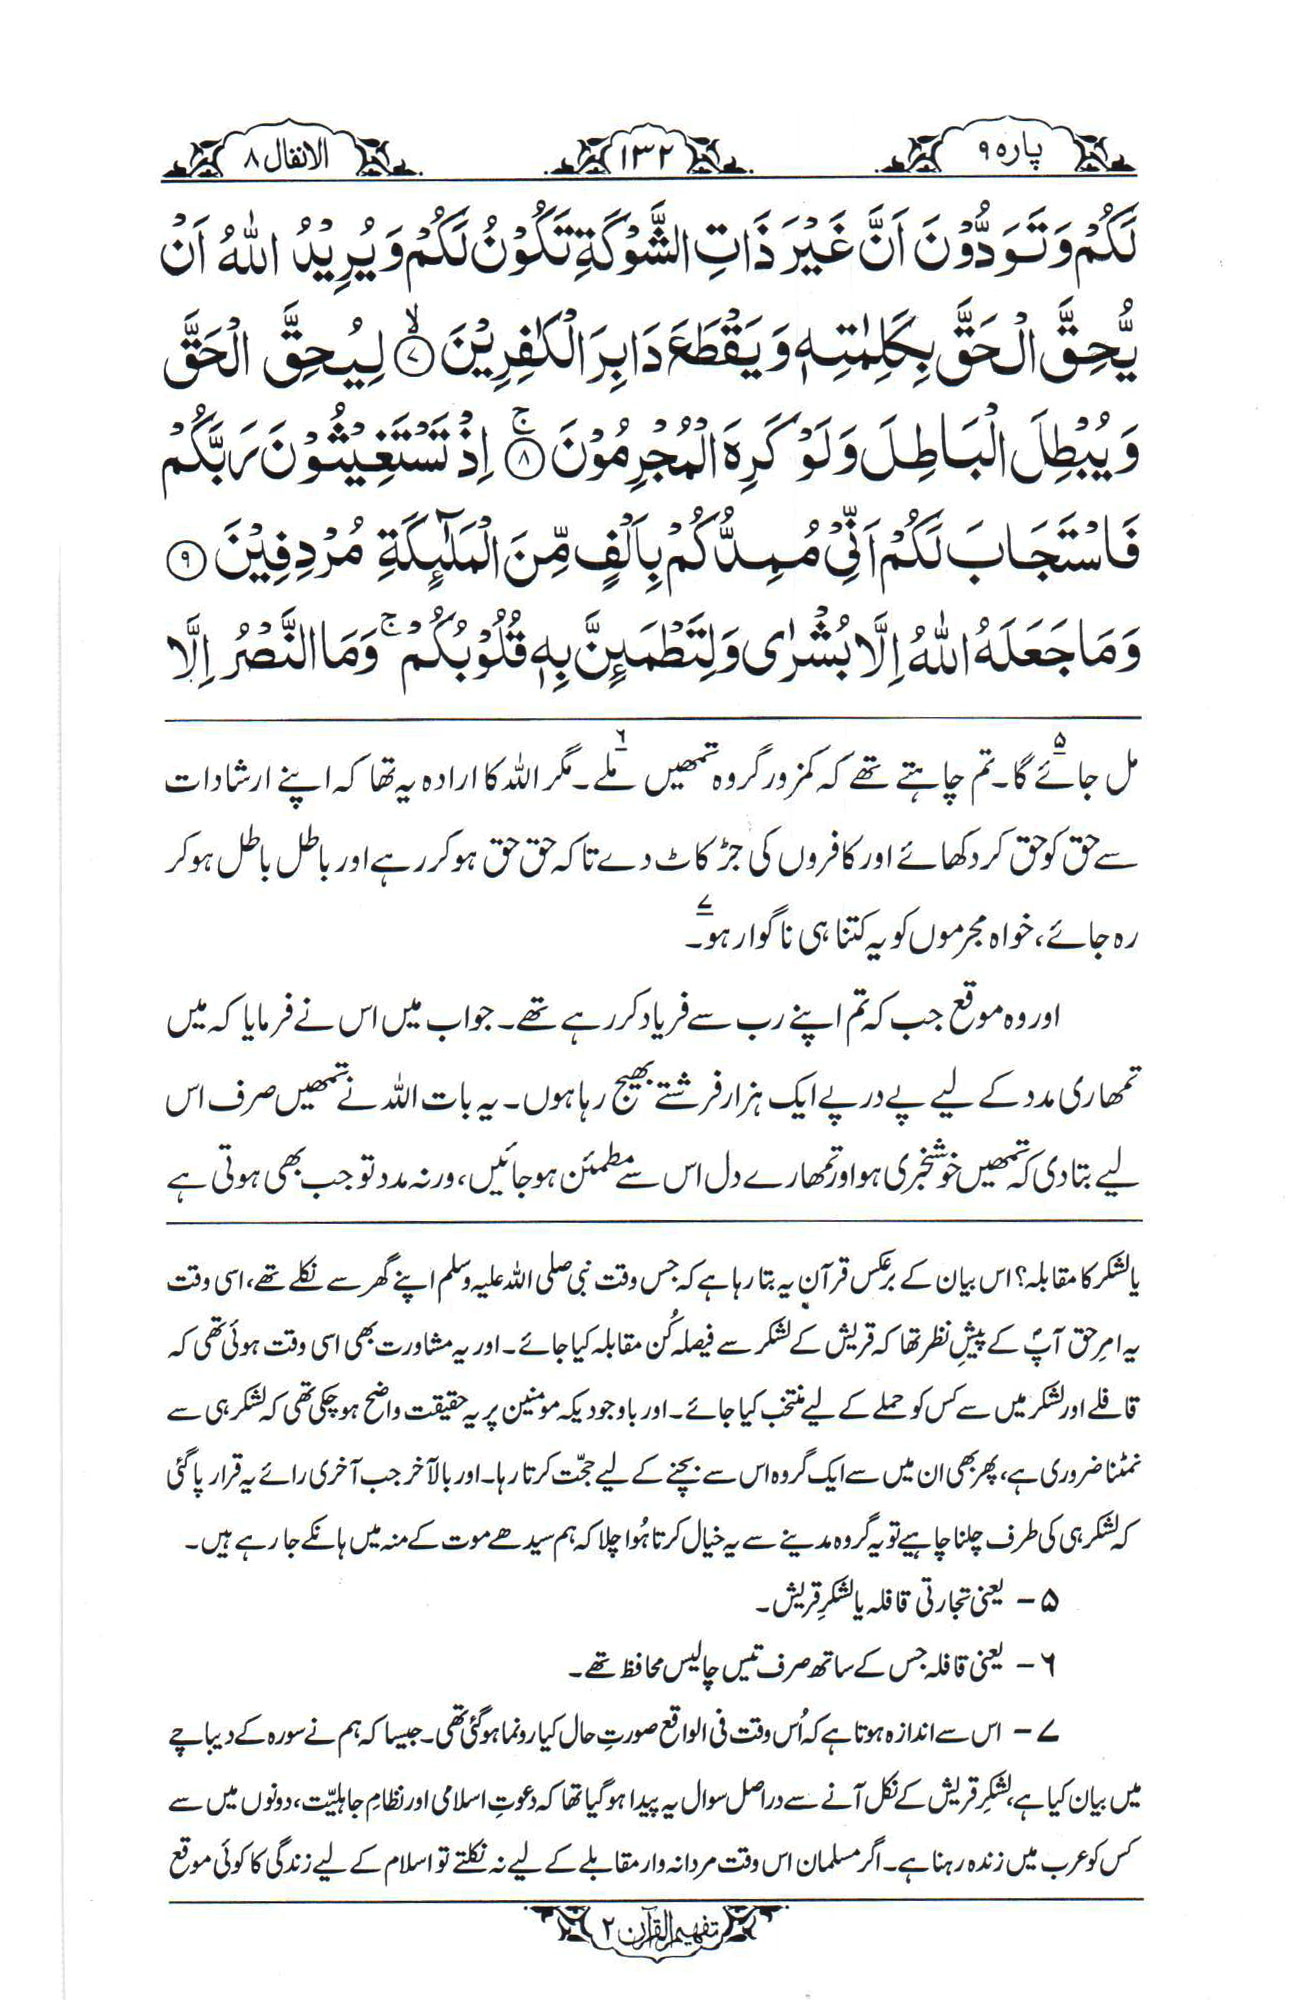 پارہ ۹
۱۳۲
الانفال ۸
لَكُمْ وَتَوَدُّوْنَ اَنَّ غَيْرَ ذَاتِ الشَّوْكَةِ تَكُوْنُ لَكُمْ وَيُرِيْدُ اللّٰهُ اَنْ
يُّحِقَّ الْحَقَّ بِكَلِمٰتِهٖ وَيَقْطَعَ دَابِرَ الْكٰفِرِيْنَ ۙ‏﴿۷﴾ لِيُحِقَّ الْحَقَّ
وَيُبْطِلَ الْبَاطِلَ وَلَوْ كَرِهَ الْمُجْرِمُوْنَ ۚ‏﴿۸﴾ اِذْ تَسْتَغِيْثُوْنَ رَبَّكُمْ
فَاسْتَجَابَ لَكُمْ اَنِّيْ مُمِدُّكُمْ بِاَلْفٍ مِّنَ الْمَلٰٓئِكَةِ مُرْدِفِيْنَ ﴿۹﴾
وَمَا جَعَلَهُ اللّٰهُ اِلَّا بُشْرٰى وَلِتَطْمَئِنَّ بِهٖ قُلُوْبُكُمْ ۚ وَمَا النَّصْرُ اِلَّا
مل جائے گا۔۵ تم چاہتے تھے کہ کمزور گروہ تمھیں ملے۔۶ مگر اللہ کا ارادہ یہ تھا کہ اپنے ارشادات
سے حق کو حق کر دکھائے اور کافروں کی جڑ کاٹ دے تاکہ حق حق ہو کر رہے اور باطل باطل ہو کر
رہ جائے، خواہ مجرموں کو یہ کتنا ہی ناگوار ہو۔۷
اور وہ موقع جب کہ تم اپنے رب سے فریاد کر رہے تھے۔ جواب میں اس نے فرمایا کہ میں
تمھاری مدد کے لیے پے در پے ایک ہزار فرشتے بھیج رہا ہوں۔ یہ بات اللہ نے تمھیں صرف اس
لیے بتا دی کہ تمھیں خوشخبری ہو اور تمھارے دل اس سے مطمئن ہو جائیں، ورنہ مدد تو جب بھی ہوتی ہے
یا لشکر کا مقابلہ؟ اس بیان کے برعکس قرآن یہ بتا رہا ہے کہ جس وقت نبی صلی اللہ علیہ وسلم اپنے گھر سے نکلے تھے، اسی وقت
یہ امرِ حق آپؐ کے پیشِ نظر تھا کہ قریش کے لشکر سے فیصلہ کُن مقابلہ کیا جائے۔ اور یہ مشاورت بھی اسی وقت ہوئی تھی کہ
قافلے اور لشکر میں سے کس کو حملے کے لیے منتخب کیا جائے۔ اور باوجودیکہ مومنین پر یہ حقیقت واضح ہو چکی تھی کہ لشکر ہی سے
نمٹنا ضروری ہے، پھر بھی ان میں سے ایک گروہ اس سے بچنے کے لیے حجّت کرتا رہا۔ اور بالآخر جب آخری رائے یہ قرار پا گئی
کہ لشکر ہی کی طرف چلنا چاہیے تو یہ گروہ مدینے سے یہ خیال کرتا ہُوا چلا کہ ہم سیدھے موت کے منہ میں ہانکے جا رہے ہیں۔
۵ – یعنی تجارتی قافلہ یا لشکرِ قریش۔
۶ – یعنی قافلہ جس کے ساتھ صرف تیس چالیس محافظ تھے۔
۷ – اس سے اندازہ ہوتا ہے کہ اُس وقت فی الواقع صورتِ حال کیا رونما ہو گئی تھی۔ جیسا کہ ہم نے سورہ کے دیباچے
میں بیان کیا ہے، لشکرِ قریش کے نکل آنے سے دراصل سوال یہ پیدا ہو گیا تھا کہ دعوتِ اسلامی اور نظامِ جاہلیّت، دونوں میں سے
کس کو عرب میں زندہ رہنا ہے۔ اگر مسلمان اس وقت مردانہ وار مقابلے کے لیے نہ نکلتے تو اسلام کے لیے زندگی کا کوئی موقع
تفہیم القرآن ۲